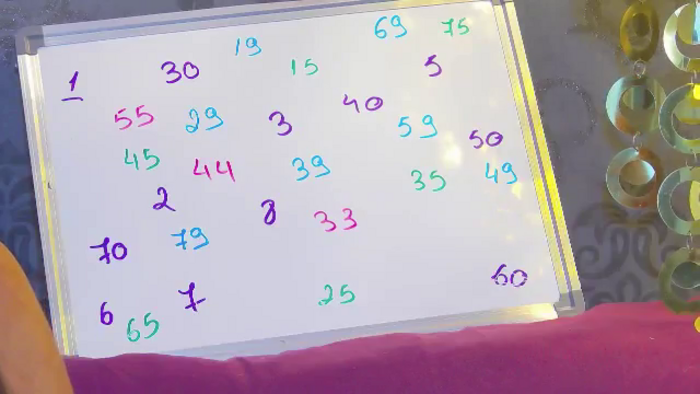 19 69 75
1 30 15 5
55 29 3 40 59 50
45 44 39 35 49
2 8 33
70 79
6 65 7 25 60